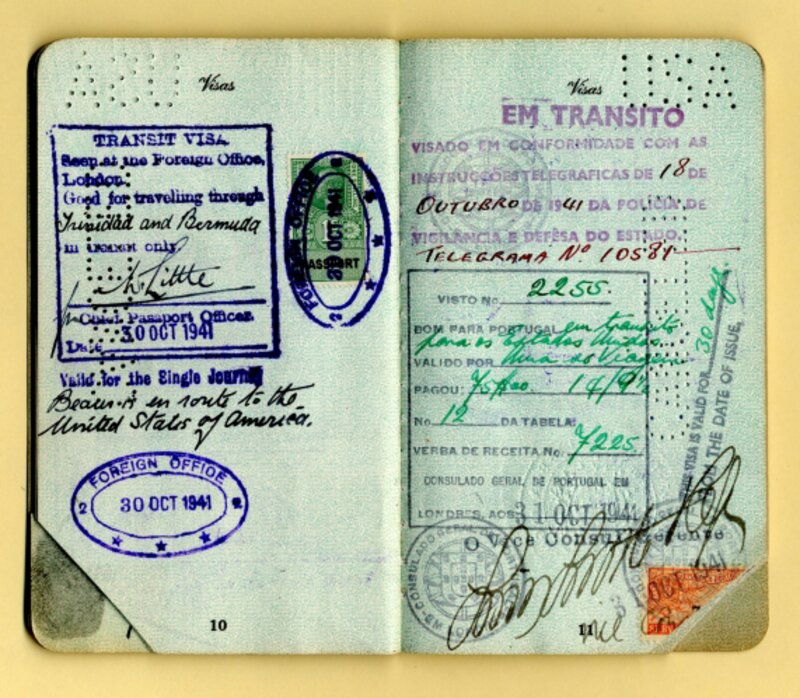 Visas
TRANSIT VISA
Seen at the Foreign Office,
London.
Good for travelling through
Trinidad and Bermuda
in transit only
Little
Chief Passport Officer.
Date 30 OCT 1941
Valid for the Single Journey
Bearer is en route to the
United States of America.
FOREIGN OFFICE
30 OCT 1941
2 2
FOREIGN OFFICE
30 OCT 1941
PASSPORT
10
Visas
USA
EM TRANSITO
VISADO EM CONFORMIDADE COM AS
INSTRUCÇÕES TELEGRAFICAS DE 18 DE
OUTUBRO DE 1941 DA POLICIA DE
VIGILANCIA E DEFESA DO ESTADO.
TELEGRAMA Nº 10581
VISTO No. 2255
BOM PARA PORTUGAL em transito
para os Estados Unidos
VALIDO POR uma só Viagem
PAGOU:
No. 12 DA TABELA:
VERBA DE RECEITA No. 7225
CONSULADO GERAL DE PORTUGAL EM
LONDRES, AOS 31 OCT 1941
O Vice Consul Gerente
THIS VISA IS VALID FOR 30 days
UPON THE DATE OF ISSUE.
31 OCT 1941
11